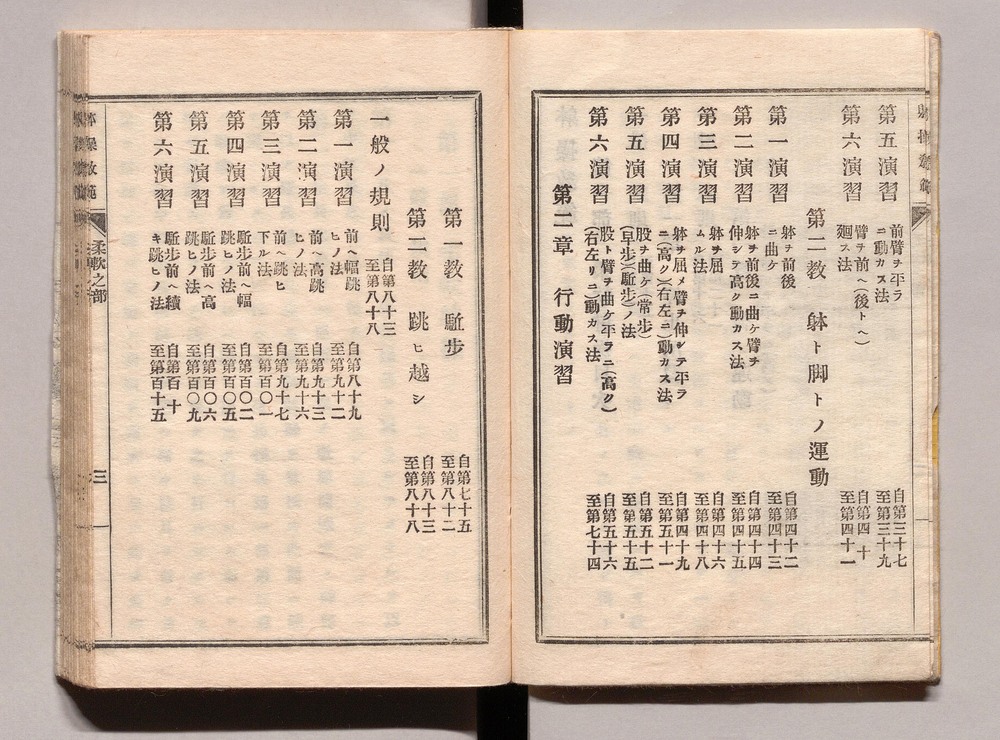 第五演習 前臂ヲ平ラニ動カス法 自第三十七至第三十九
第六演習 臂ヲ前ヘ(後トヘ)廻ス法 自第四十至第四十一
第二教 躰ト脚トノ運動
第一演習 躰ヲ前後ニ曲ケ 自第四十二至第四十三
第二演習 躰ヲ前後ニ曲ケ臂ヲ伸シテ高ク動カス法 自第四十四至第四十五
第三演習 躰ヲ屈ムル法 自第四十六至第四十八
第四演習 躰ヲ屈メ臂ヲ伸シテ平ラニ(高ク)(右左ニ)動カス法 自第四十九至第五十一
第五演習 股ヲ曲ケ(常歩)(早歩)(駈歩)ノ法 自第五十二至第五十五
第六演習 股ト臂ヲ曲ケ平ラニ(高ク)(右左リニ)動カス法 自第五十六至第七十四
第二章 行動演習
第一教 駈歩 自第七十五至第八十二
第二教 跳ヒ越シ 自第八十三至第八十八
一般ノ規則 自第八十三至第八十八
第一演習 前ヘ幅跳ヒノ法 自第八十九至第九十二
第二演習 前ヘ高跳ヒノ法 自第九十三至第九十六
第三演習 前ヘ跳ヒ下ル法 自第九十七至第百〇一
第四演習 駈歩前ヘ幅跳ヒノ法 自第百〇二至第百〇五
第五演習 駈歩前ヘ高跳ヒノ法 自第百〇六至第百〇九
第六演習 駈歩前ヘ續キ跳ヒノ法 自第百十至第百十五
柔軟之部
三